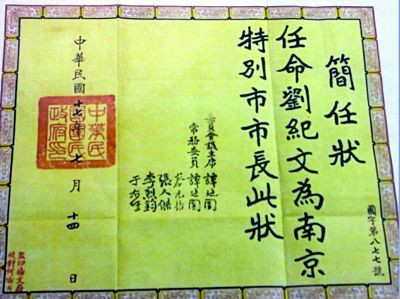 簡任狀
任命劉紀文為南京
特別市市長此狀
委員會議主席 譚延闓
常務委員 譚延闓
蔡元培
張人傑
李烈鈞
于右任
中華民國十七年七月十四日
中華民國國民政府印
國字第八七七號